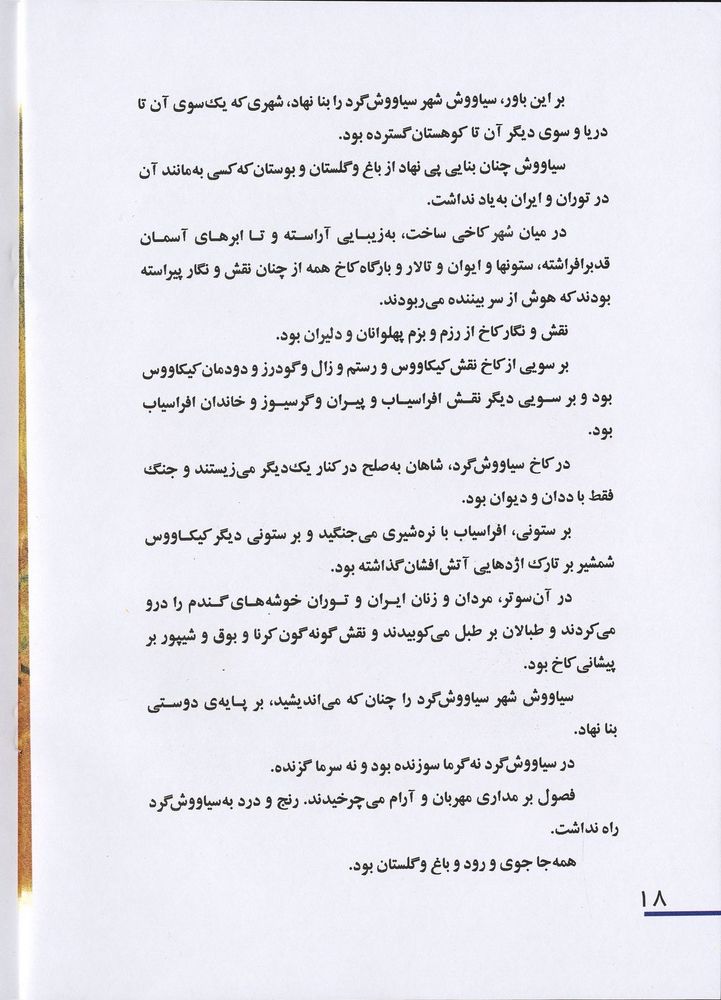 بر این باور، سیاووش شهر سیاووش‌گرد را بنا نهاد، شهری که یک‌سوی آن تا
دریا و سوی دیگر آن تا کوهستان گسترده بود.
سیاووش چنان بنایی پی نهاد از باغ و گلستان و بوستان که کسی به‌مانند آن
در توران و ایران به‌یاد نداشت.
در میان شهر کاخی ساخت، به‌زیبایی آراسته و تا ابرهای آسمان
قدبرافراشته، ستونها و ایوان و تالار و بارگاه کاخ همه از چنان نقش و نگار پیراسته
بودند که هوش از سر بیننده می‌ربودند.
نقش و نگار کاخ از رزم و بزم پهلوانان و دلیران بود.
بر سویی از کاخ نقش کیکاووس و رستم و زال و گودرز و دودمان کیکاووس
بود و بر سویی دیگر نقش افراسیاب و پیران و گرسیوز و خاندان افراسیاب
بود.
در کاخ سیاووش‌گرد، شاهان به‌صلح در کنار یک‌دیگر می‌زیستند و جنگ
فقط با ددان و دیوان بود.
بر ستونی، افراسیاب با نره‌شیری می‌جنگید و بر ستونی دیگر کیکاووس
شمشیر بر تارک اژدهایی آتش‌افشان گذاشته بود.
در آن‌سوتر، مردان و زنان ایران و توران خوشه‌های گندم را درو
می‌کردند و طبالان بر طبل می‌کوبیدند و نقش گونه‌گون کرنا و بوق و شیپور بر
پیشانی کاخ بود.
سیاووش شهر سیاووش‌گرد را چنان که می‌اندیشید، بر پایه‌ی دوستی
بنا نهاد.
در سیاووش‌گرد نه گرما سوزنده بود و نه سرما گزنده.
فصول بر مداری مهربان و آرام می‌چرخیدند. رنج و درد به‌سیاووش‌گرد
راه نداشت.
همه‌جا جوی و رود و باغ و گلستان بود.
۱۸